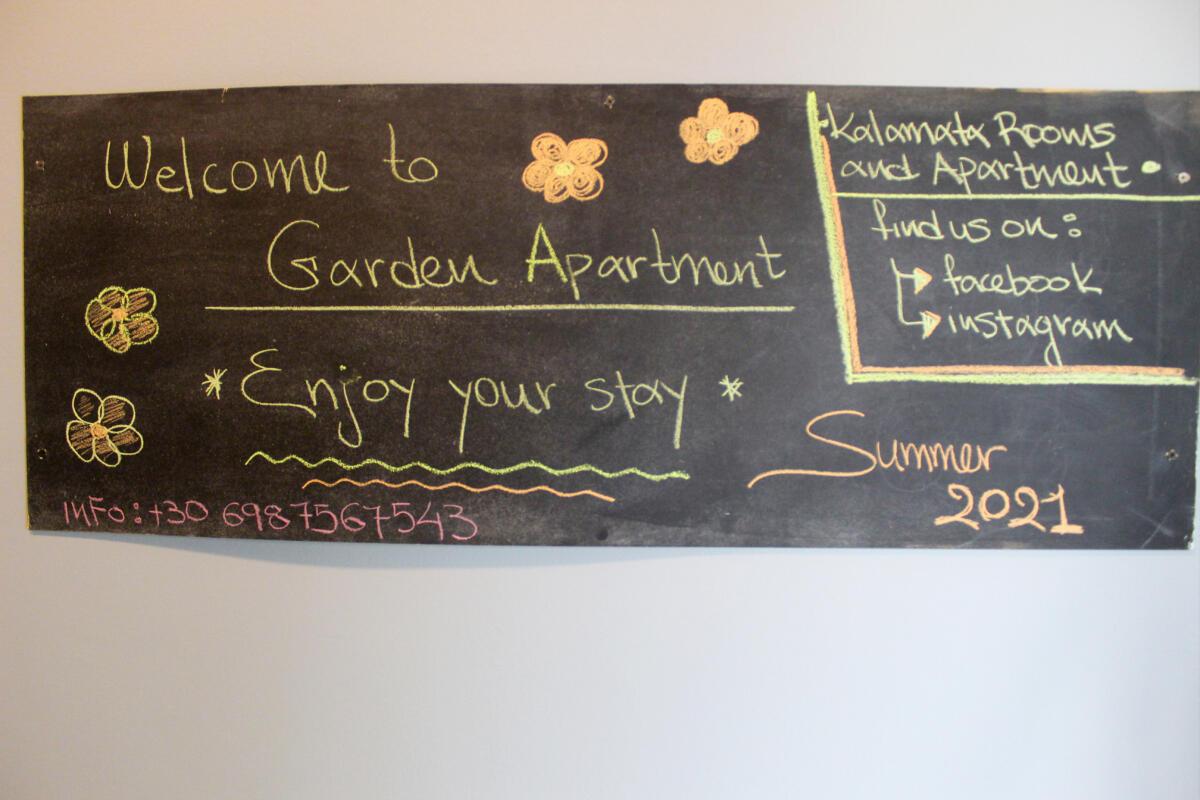 Welcome to
Garden Apartment
* Enjoy your stay *
info: +30 6987567543
Kalamata Rooms
and Apartment
find us on:
facebook
instagram
Summer
2021